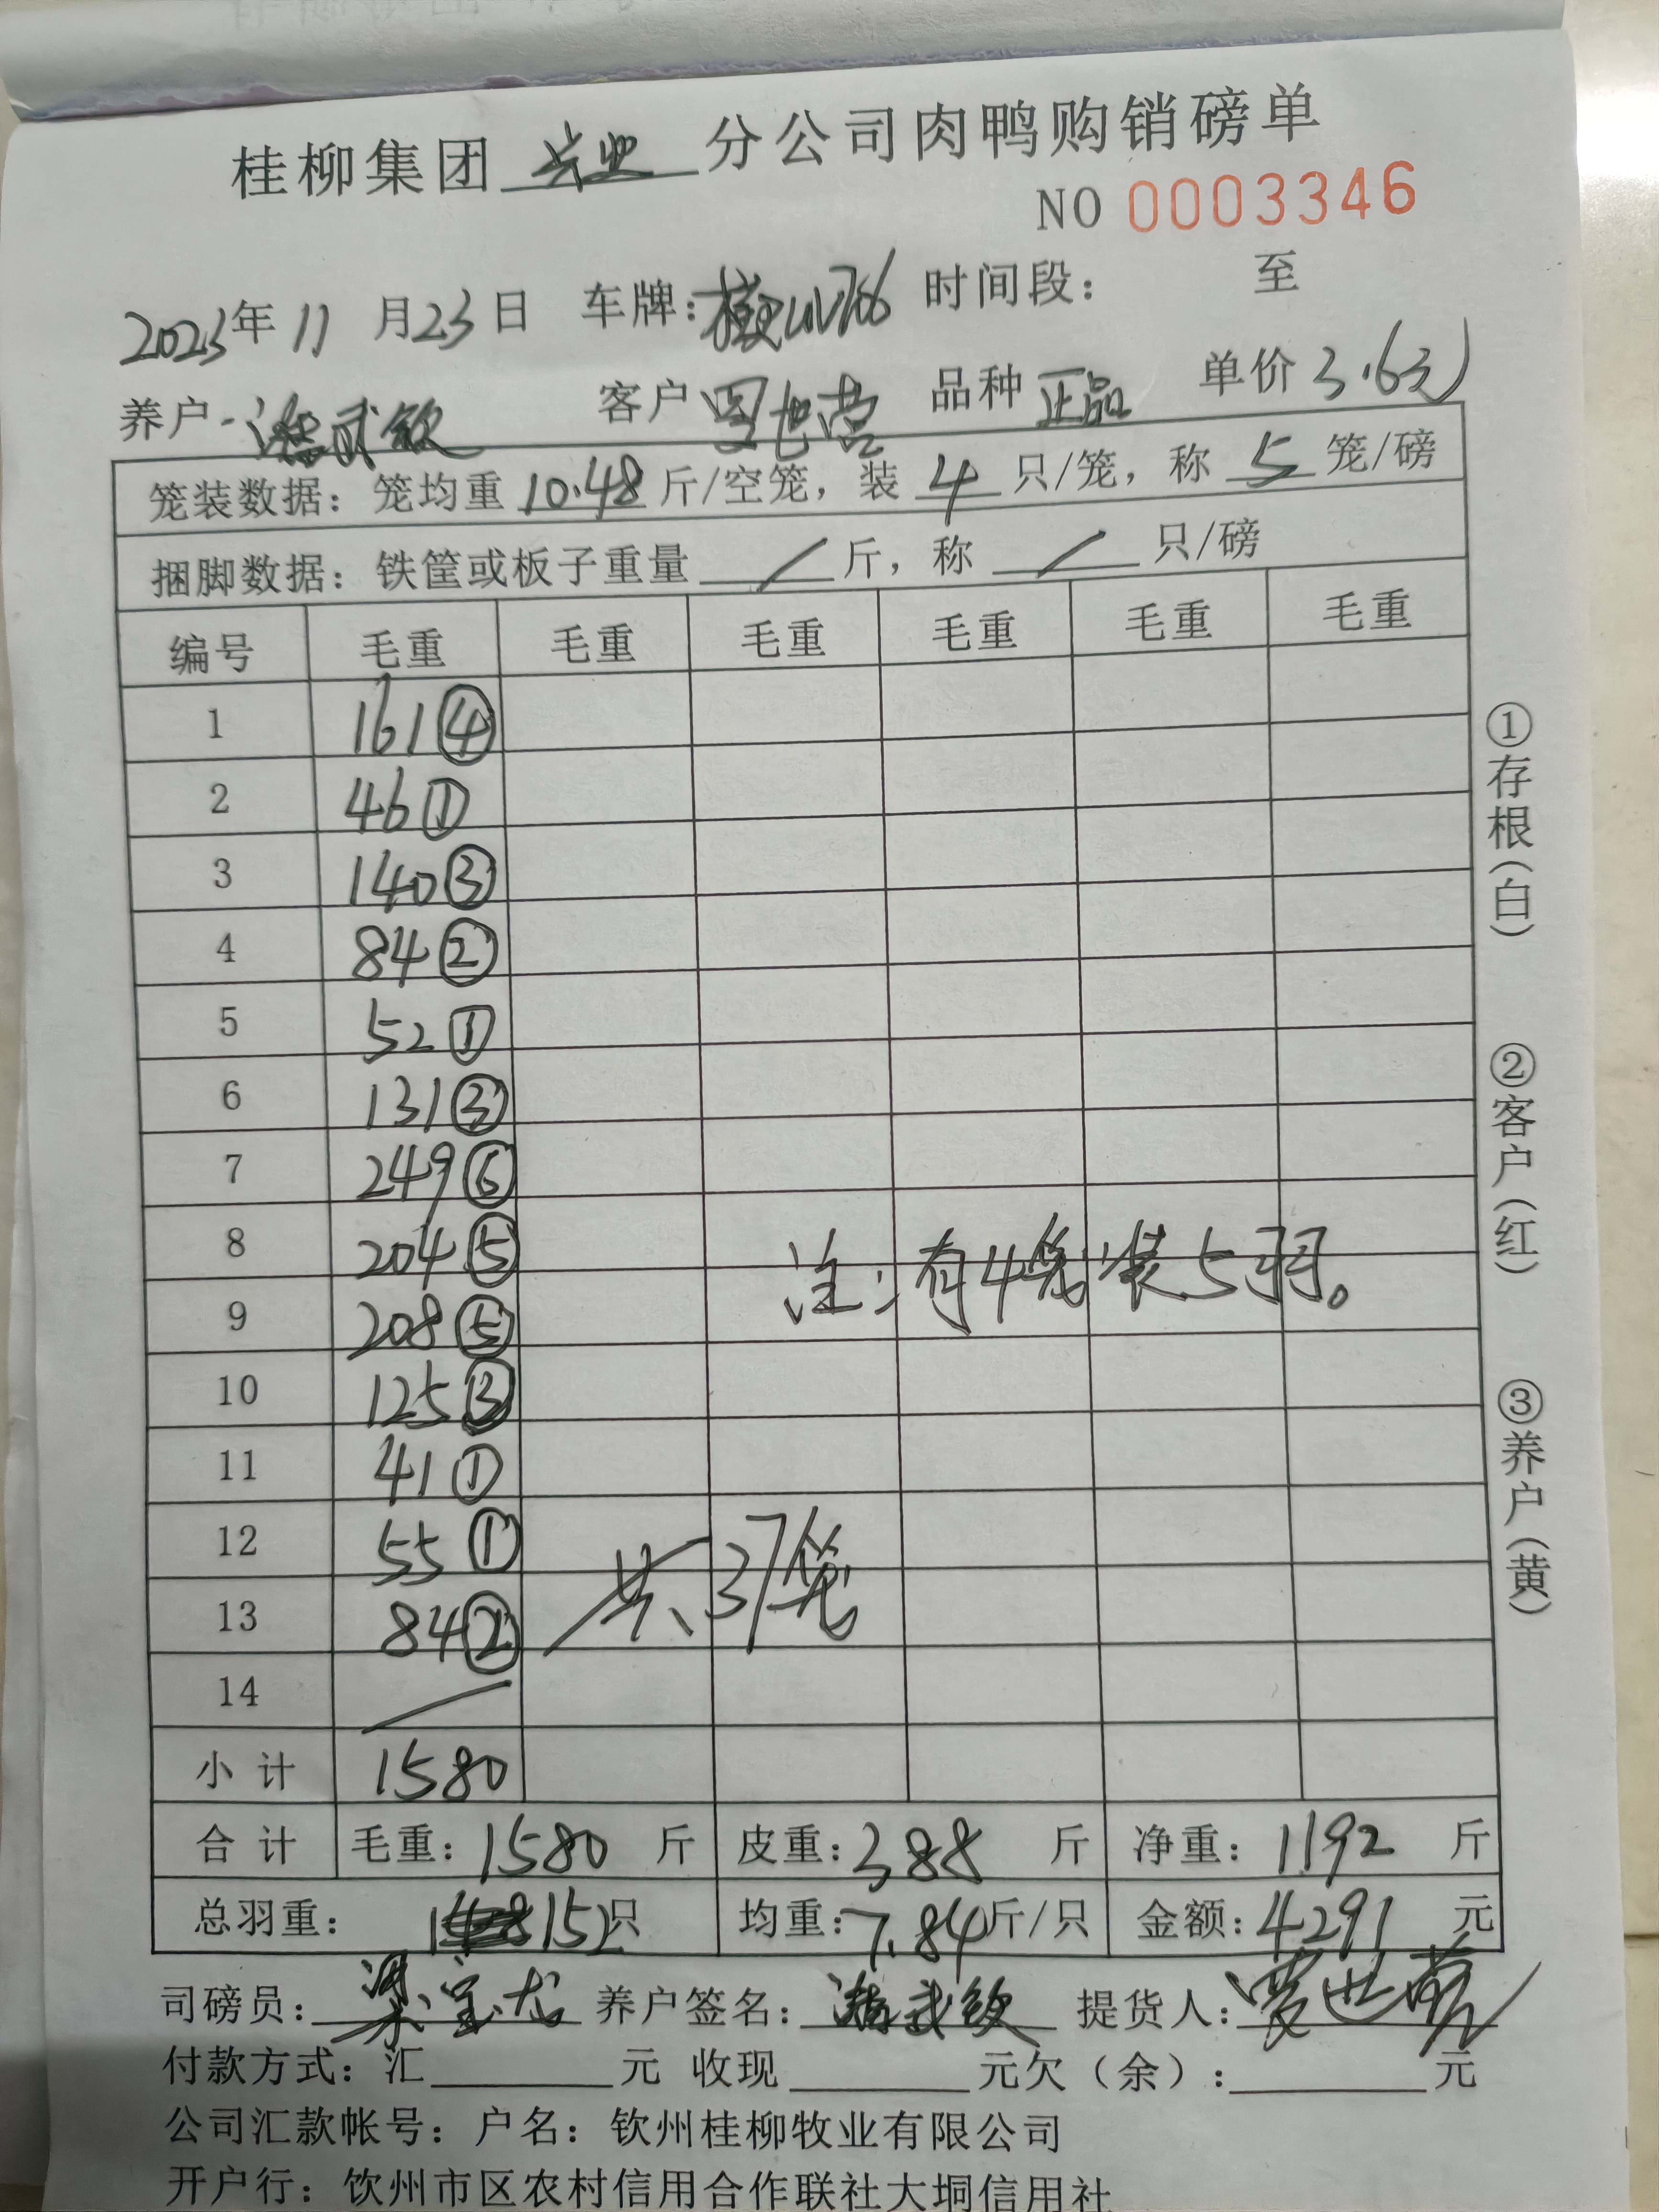 桂柳集团 兴业 分公司肉鸭购销磅单
NO 0003346
2023年 11 月 23 日 车牌: 时间段: 至
养户 客户 品种 正品 单价 3.6元
笼装数据: 笼均重 10.48 斤/空笼, 装 4 只/笼, 称 5 笼/磅
捆脚数据: 铁筐或板子重量 / 斤, 称 / 只/磅
编号 毛重 毛重 毛重 毛重 毛重 毛重
1 161④
2 46①
3 140③
4 84②
5 52①
6 131③
7 249⑥
8 204⑤
注:有4笼装5羽。
9 208⑤
10 125③
11 41①
12 55①
共37笼
13 84②
14 /
小计 1580
合计 毛重: 1580 斤 皮重: 388 斤 净重: 1192 斤
总羽重: 152只 均重: 7.84斤/只 金额: 4291 元
司磅员: 梁宝龙 养户签名: 提货人:
付款方式: 汇 元 收现 元欠(余): 元
公司汇款帐号: 户名: 钦州桂柳牧业有限公司
开户行: 钦州市区农村信用合作联社大垌信用社
①存根(白)
②客户(红)
③养户(黄)